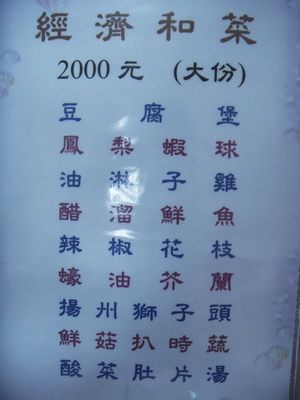 經濟和菜
2000元 (大份)
豆腐堡
鳳梨蝦球
油淋子雞
醋溜鮮魚
辣椒花枝
蠔油芥蘭
揚州獅子頭
鮮菇扒時蔬
酸菜肚片湯